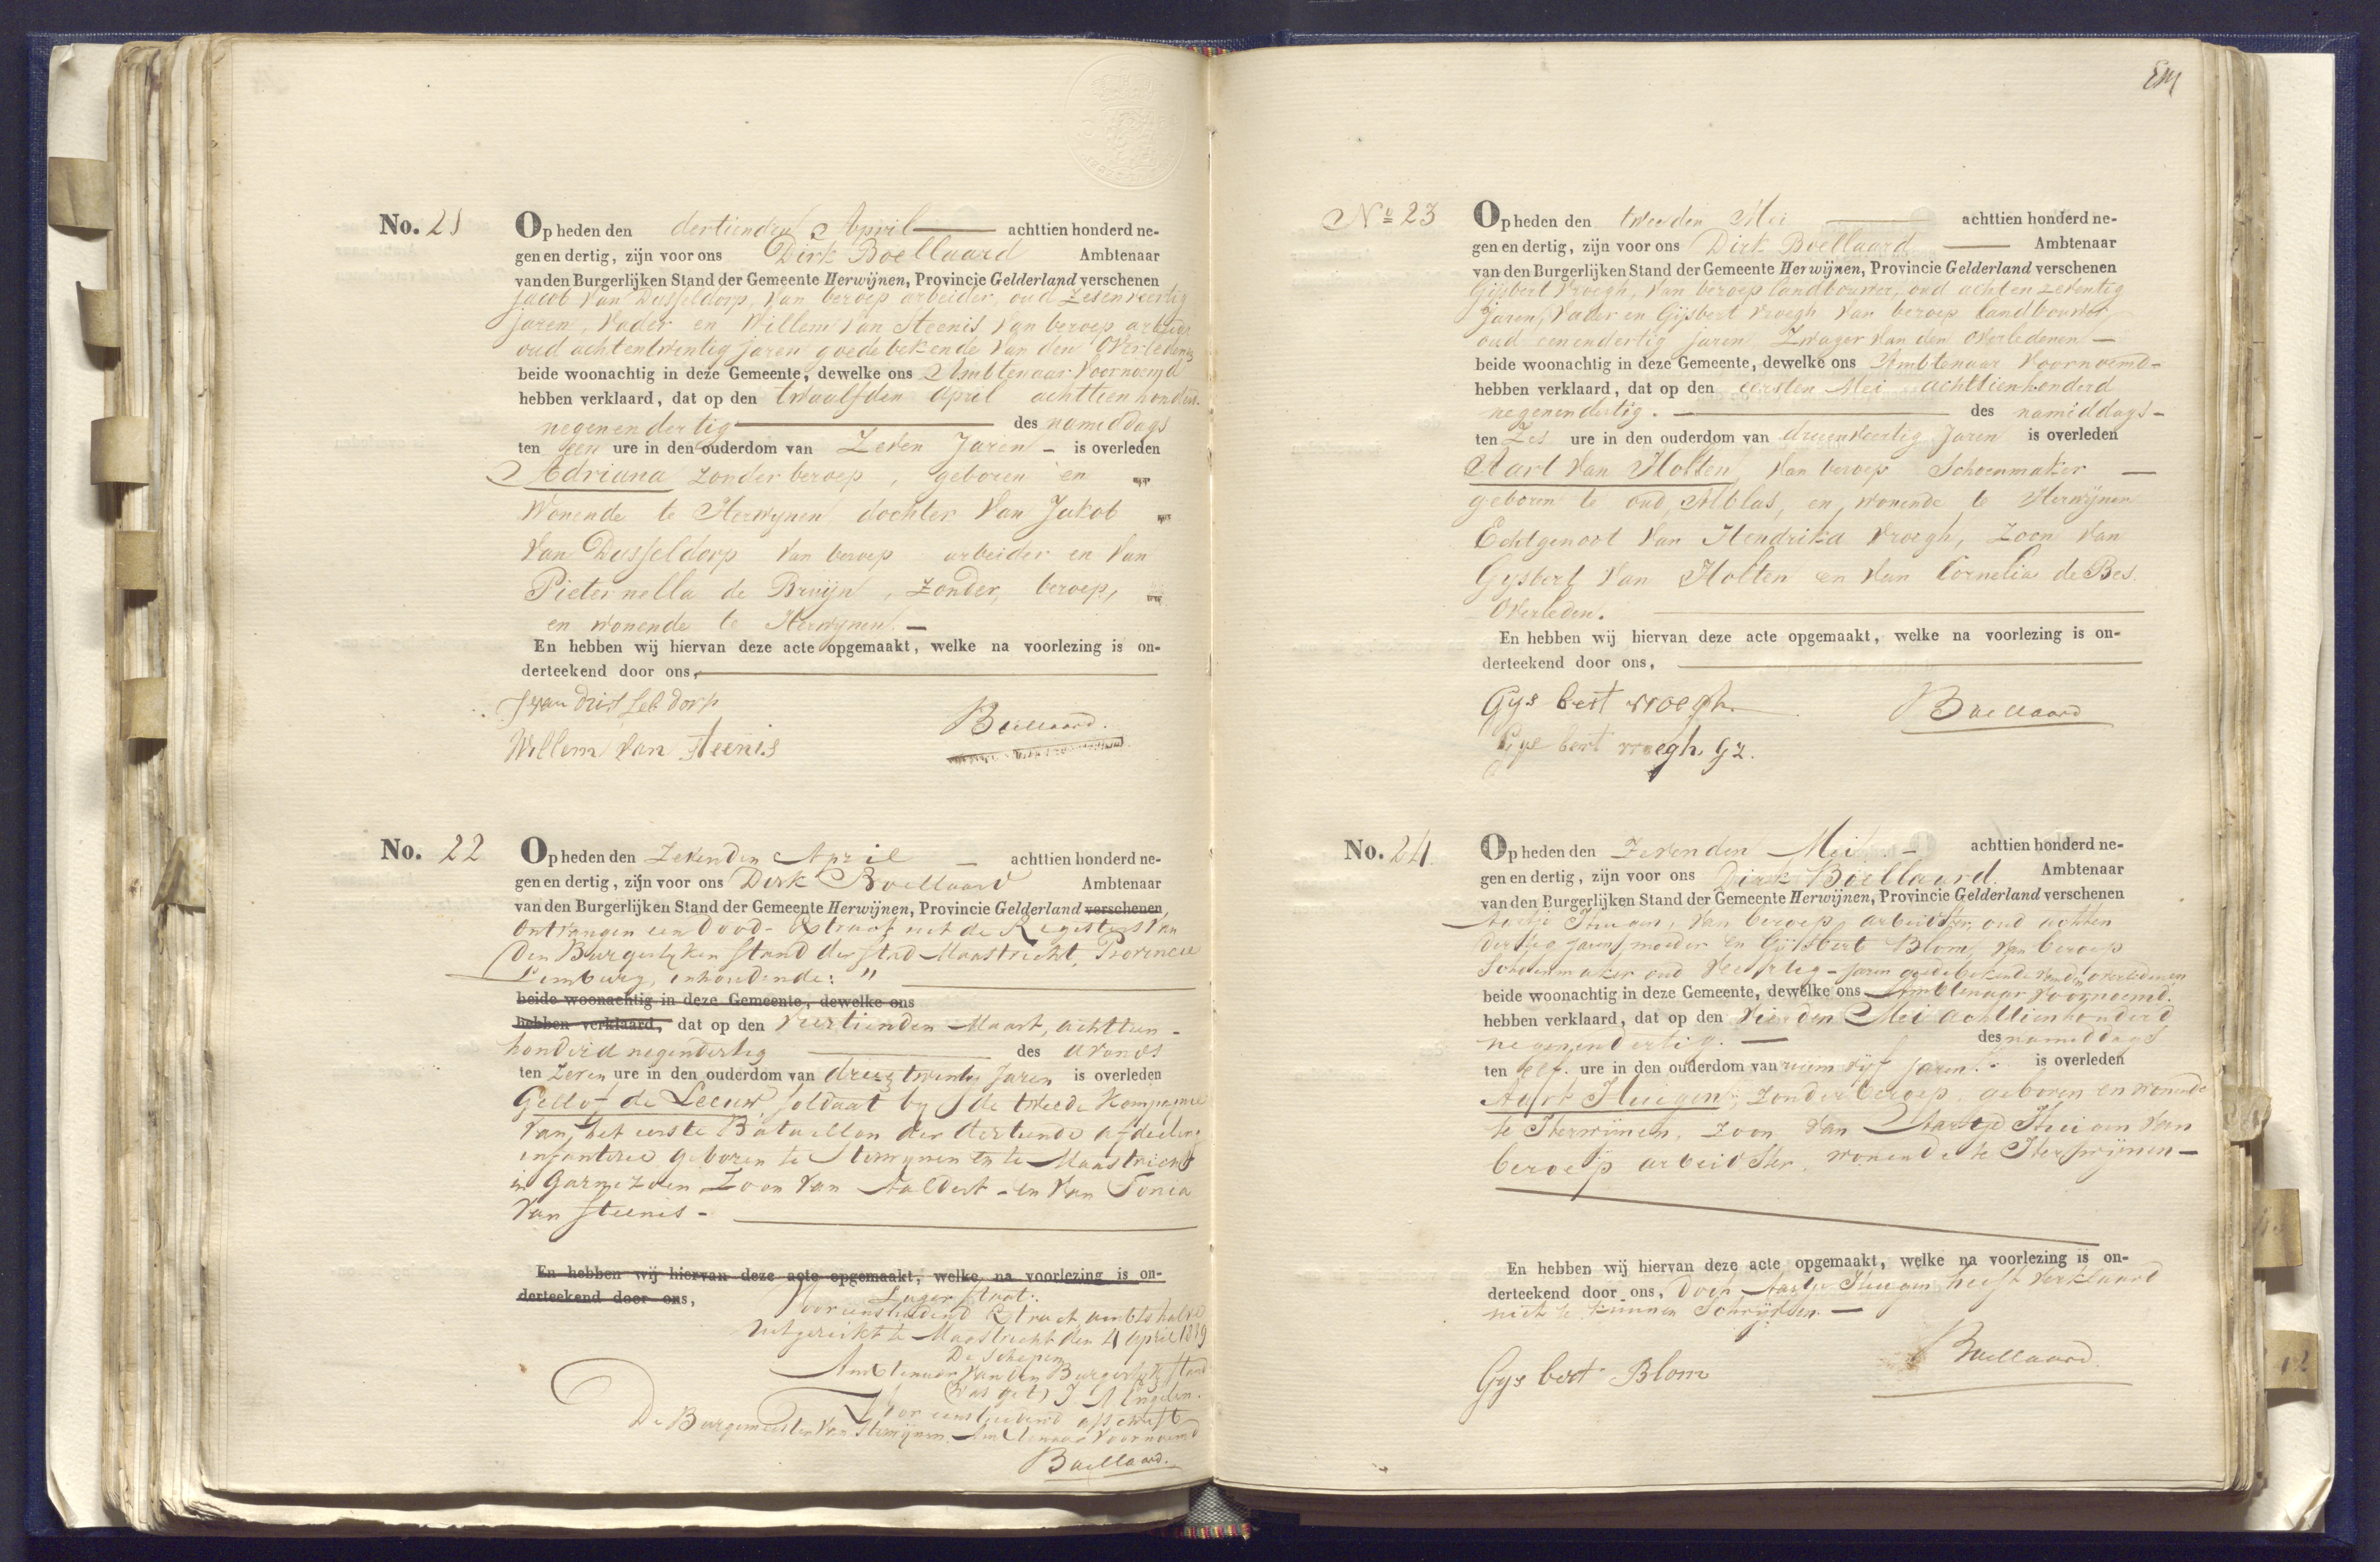 No. 21
Op heden den dertienden April achttien honderd ne-
gen en dertig, zijn voor ons Dirk Boellaard Ambtenaar
van den Burgerlijken Stand der Gemeente Herwijnen, Provincie Gelderland verschenen
Jacob van Dusseldorp, van beroep arbeider, oud zevenveertig
jaren, vader en Willem van Steenis van beroep arbeider
oud achtentwintig jaren goede bekende van den overledenes
beide woonachtig in deze Gemeente, dewelke ons Ambtenaar voornoemd
hebben verklaard, dat op den twaalfden April achttienhonderd
negenendertig des namiddags
ten een ure in den ouderdom van Zeven Jaren - is overleden
Adriana zonder beroep, geboren en
wonende te Herwynen dochter van Jakob
van Dusseldorp van beroep arbeider en van
Pieternella de Bruijn, zonder, beroep,
en wonende te Herwynen.
En hebben wij hiervan deze acte opgemaakt, welke na voorlezing is on-
derteekend door ons,
J van dusseldorp
Boellaard.
Willem van Steenis
No. 22
Op heden den Zevenden April achttien honderd ne-
gen en dertig, zijn voor ons Dirk Boellaard Ambtenaar
van den Burgerlijken Stand der Gemeente Herwijnen, Provincie Gelderland verschenen
Ontvangen een Dood-Extract uit de Registers van
den Burgerlyken Stand der Stad Maastricht, Provincie
Limburg, inhoudende: "
beide woonachtig in deze Gemeente, dewelke ons
hebben verklaard, dat op den Veertienden Maart, achttien-
honderd negendertig des avonds
ten Zeven ure in den ouderdom van drieentwintig Jaren is overleden
Gellof de Leeuw, soldaat by de tweede Kompagnie
van het eerste Bataillon der dertiende afdeeling
infanterie geboren te Herwynen en te Maastricht
in Garnizoen Zoon van Aaldert - en van Tonia
van Steenis -
En hebben wij hiervan deze acte opgemaakt, welke na voorlezing is on-
derteekend door ons,
Lager staat:
Voor eensluidend Extract ambtshalve
uitgereikt te Maastricht den 4 April 1839
De Schepen
Ambtenaar van den Burgerlyk Stand
(was get) J. A Engelen.
Voor eensluidend afschrift
De Burgemeester van Herwijnen. Ambtenaar voornoemd
Boellaard.
No 23
Op heden den tweeden Mei achttien honderd ne-
gen en dertig, zijn voor ons Dirk Boellaard Ambtenaar
van den Burgerlijken Stand der Gemeente Herwijnen, Provincie Gelderland verschenen
Gijsbert Vroegh, van beroep landbouwer, oud achtenzeventig
Jaren, Vader en Gijsbert Vroegh van beroep landbouwer
oud eenendertig jaren Zwager van den overledenen -
beide woonachtig in deze Gemeente, dewelke ons Ambtenaar voornoemd-
hebben verklaard, dat op den eersten Mei achttienhonderd
negenendertig. des namiddags-
ten Zes ure in den ouderdom van drieenveertig Jaren is overleden
Aart van Holten, van beroep Schoenmaker
geboren te oud, Alblas, en, wonende te Herwijnen
Echtgenoot van Hendrika Vroegh, zoon van
Gysbert van Holten en van Cornelia de Bes.
Overleden.
En hebben wij hiervan deze acte opgemaakt, welke na voorlezing is on-
derteekend door ons,
Gys bert vroegh.
Boellaard
Gys bert vroegh. Gz.
No. 24.
Op heden den Zevenden Mei achttien honderd ne-
gen en dertig, zijn voor ons Dirk Boellaard. Ambtenaar
van den Burgerlijken Stand der Gemeente Herwijnen, Provincie Gelderland verschenen
Aartje Huigen, van beroep arbeidster, oud achten
dertig jaren, moeder en Gijsbert Blom, van beroep
Schoenmaker oud Veertig - jaren goede bekende van den overledenen
beide woonachtig in deze Gemeente, dewelke ons Ambtenaar voornoemd.
hebben verklaard, dat op den vierden Mei achttienhonderd
negenendertig. des namiddags
ten elf. ure in den ouderdom van ruim vijf jaren. is overleden
Aart Huigen, zonder beroep, geboren en wonende
te Herwijnen, zoon van Aartje Huigen van
beroep arbeidster, wonende te Herwijnen -
En hebben wij hiervan deze acte opgemaakt, welke na voorlezing is on-
derteekend door ons, doch Aartje Huigen heeft verklaard
niet te kunnen Schrijven. -
Boellaard.
Gys bert Blom